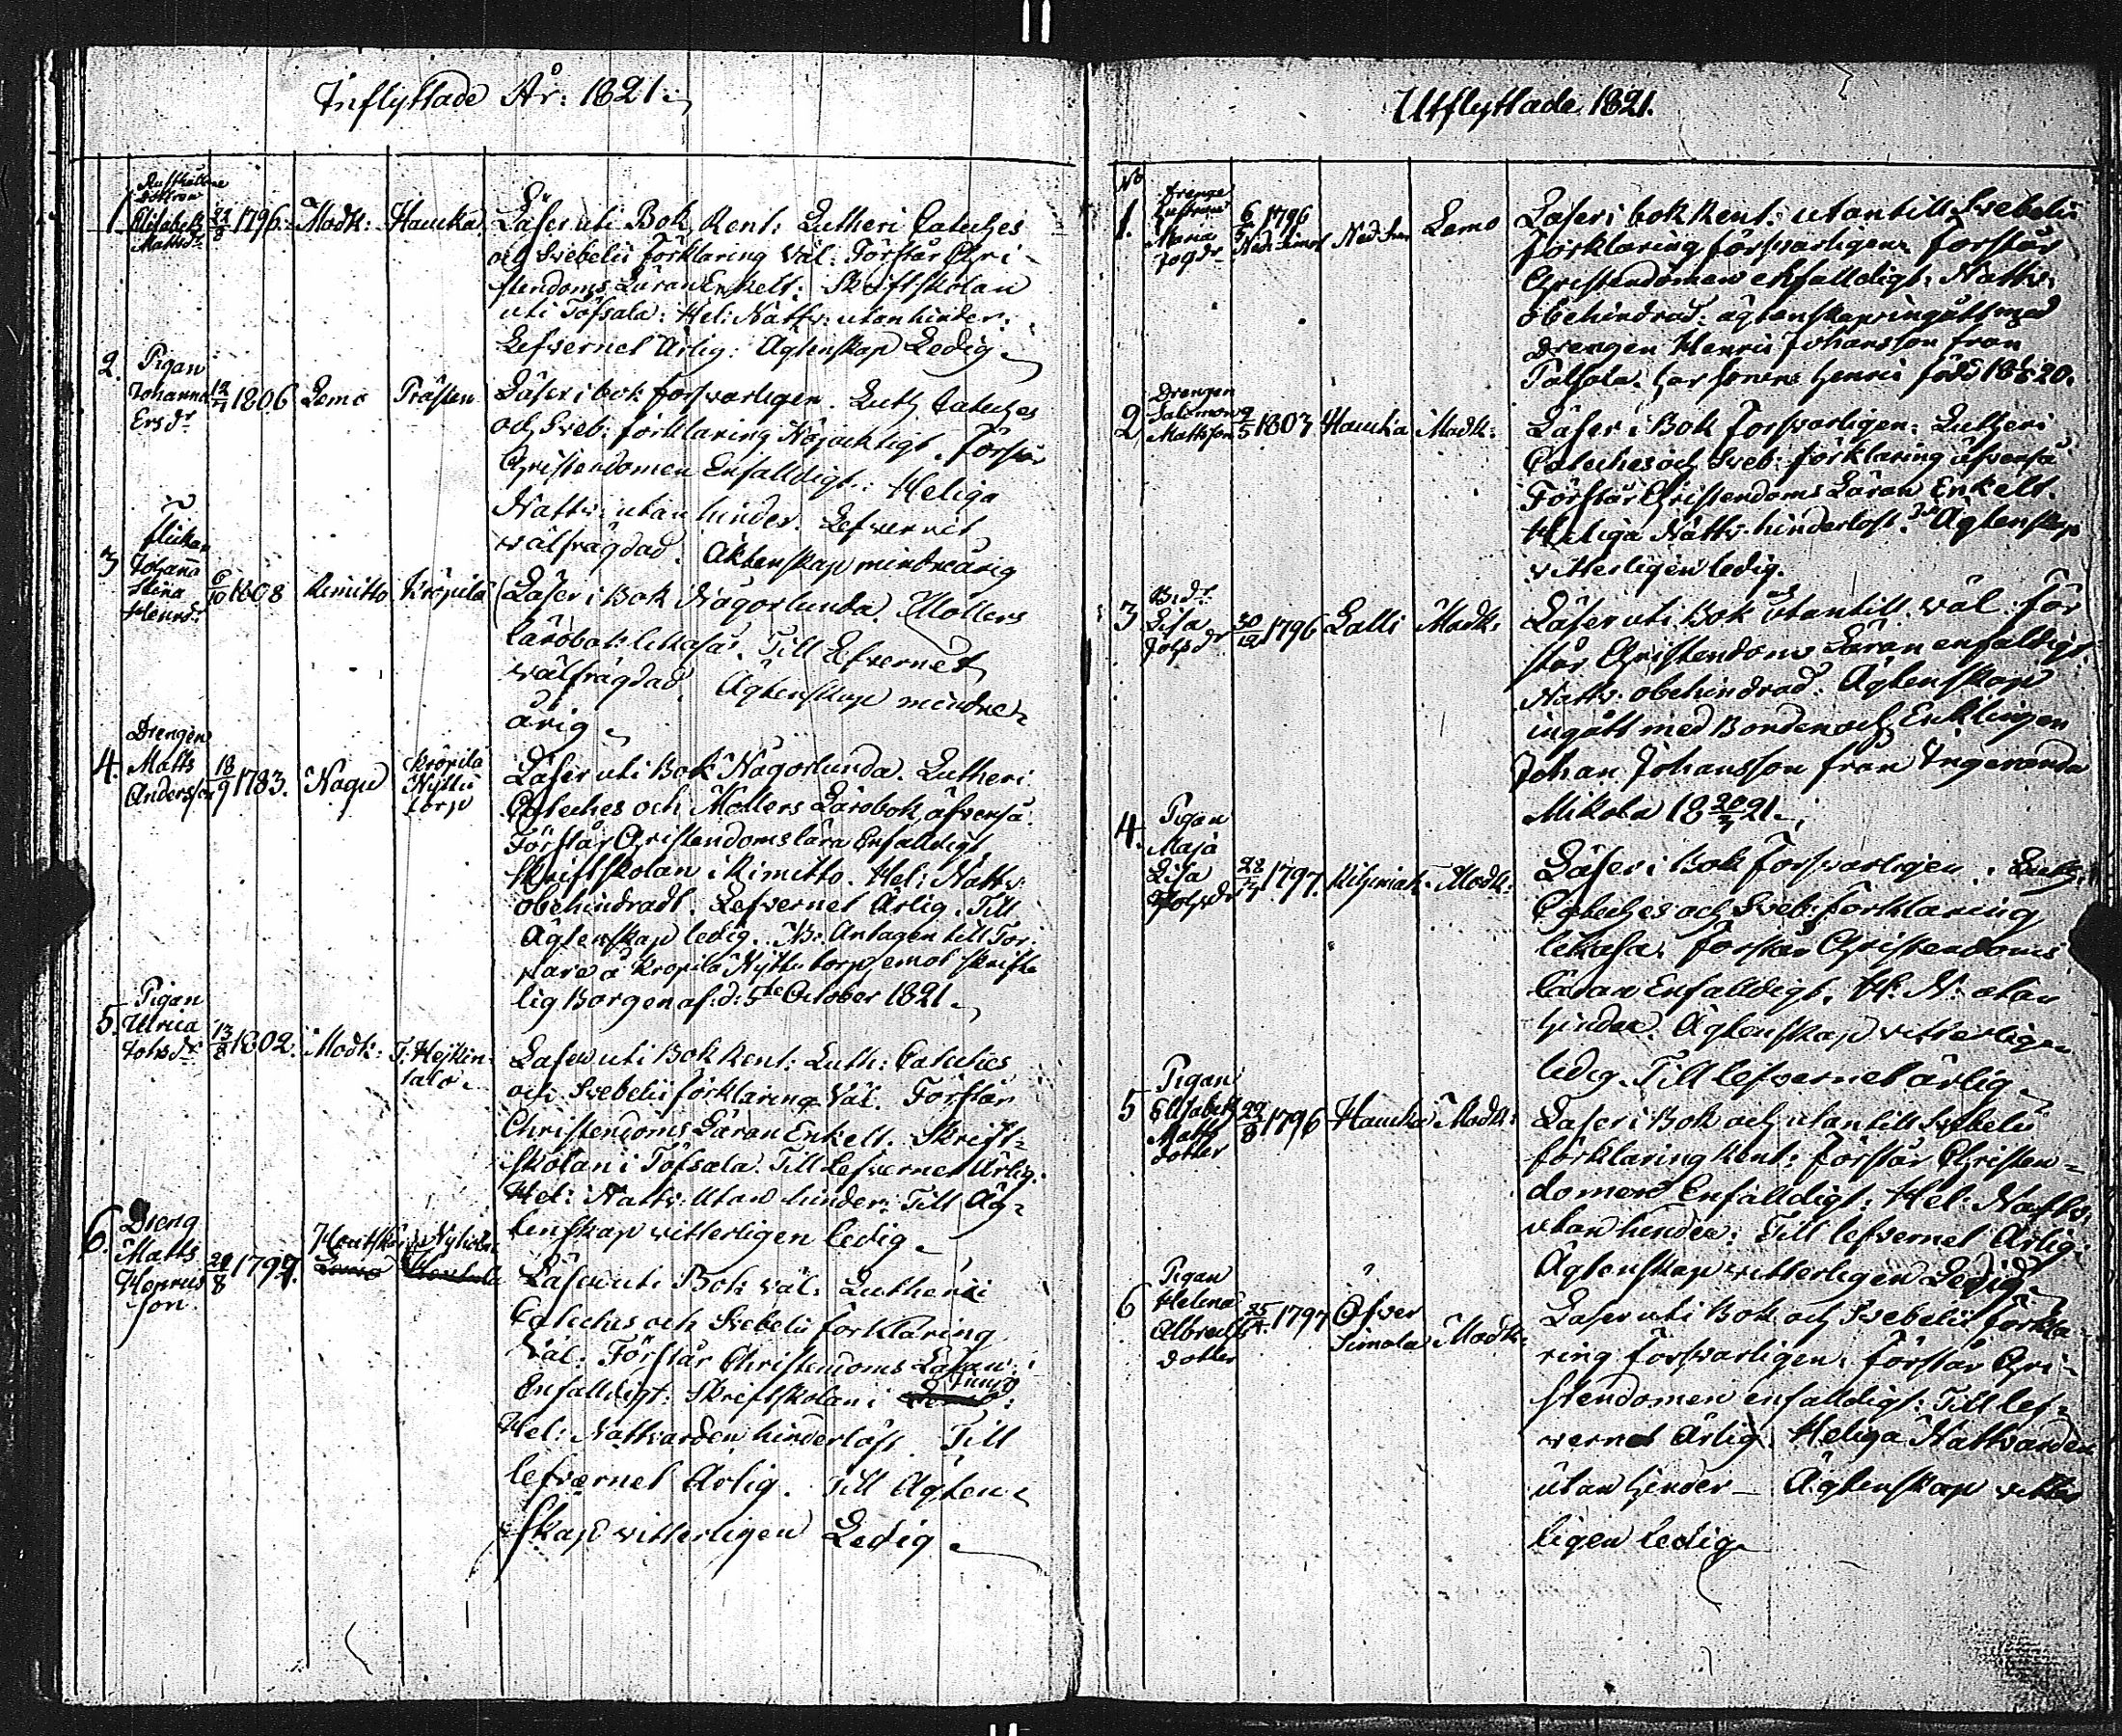 Inflyttade År: 1821.
1. Rusthållare
Dottren
Elisabeth
Mattsdr
22/8 1796. Modk: Haucka.
Läser uti Bok Rent: Lutheri Cateches
och Svebelii Förklaring Väl. Förstår Chri-
stendoms Läran Enkelt. Skriftskolan
uti Töfsala. Hel: Nattv: utan hinder.
Lefvernet Ärlig. Ägtenskap Ledig
2. Pigan
Johanna
Ersdr
1806 Lemo Prästen
Läser i bok försvarligen. Luth Cateches
och Sveb: förklaring Nöjachtligt. Förstår
Christendomen Enfalldigt. Heliga
Nattv: utan hinder. Lefvernet
välfrägdad. Äktenskap minderårig
3 Flickan
Johanna
Stina
Henrdr
6/10 1808 Rimitto Kröpilä
Läser i Bok Någorlunda. Möllers
Lärobok likaså. Till Lefvernet
välfrägdad. Ägtenskap mindre-
årig
4. Drengen
Matts
Andersson
18/9 1783. Nagu Kröpilä
Nytti
torp
Läser uti Bok Någorlunda. Lutheri
Cateches och Möllers Lärobok äfvenså.
Förstår Christendomslära Enfalldigt
Skriftskolan i Rimitto. Hel: Nattv:
obehindradt. Lefvernet Ärlig. Till
Ägtenskap ledig. NB. Antagen till Tor-
pare å Kröpilä Nytti torp emot skrifte-
lig Borgen af d: 5te October 1821.
5. Pigan
Ulrica
Johsdr
13/8 1802. Modk: T. Hejkin-
talo.
Läser uti Bok Rent: Luth: Cateches
och Svebelii förklaring Väl. Förstår
Christendoms Läran Enkelt. Skrift-
skolan i Töfsala. Till Lefvernet Ärlig.
Hel: Nattv: Utan hinder: Till Äg-
tenskap vitterligen ledig
6. Dreng
Matts
Henriks
son
1799. Houtskär Nyholm
Läser uti Bok väl. Lutherii
Cateches och Svebelii förklaring
Väl. Förstår Christendoms Läran
Enfalldigt. Skriftskolan i
Hel: Nattvarden hinderlöst. Till
lefvernet Ärlig. Till Ägten-
skap vitterligen Ledig
Utflyttade 1821.
No
1. Drenge
hustrun
Maria
6/5 1796
Ned: Simol Lemo
Läser i bok Rent: utantill Svebelii
förklaring försvarligen. Förstår
Christendomen enfalldigt. Nattv:
obehindrad. ägtenskap ingått med
Drengen Henric Johansson från
har sonen Henric född 1820.
2 Drengen
Salomon
Mattsson
9/5 1803 Haucka Modk:
Läser i Bok försvarligen: Lutheri
Cateches och Sveb: förklaring äfvenså
Förstår Christendoms Läran Enkelt.
Heliga Nattv: hinderlöst. Till Ägtenskap
vitterligen ledig.
3 Bdr
Lisa
Johsdr
30/12 1796 Lalli Modk:
Läser uti Bok och utantill väl. För
står Christendoms Läran enfaldigt
Nattv: obehindrad. Ägtenskap
ingått med Bonden och Enklingen
Johan Johansson från Ingeranda
Mikola 18 20/3 21.
4. Pigan
Maja
Lisa
Johsdr
1797. Modk:
Läser i Bok försvarligen. Luth:
Cateches och Sveb: förklaring
likaså. Förstår Christendoms
läran Enfalldigt. H: N: utan
hinder. Ägtenskap vitterligen
ledig. Till lefvernet ärlig
5 Pigan
Elisabeth
Matts
dotter
22/8 1796 Haucka Modk:
Läser i Bok och utantill Svebelii
förklaring Rent: förstår Christen-
domen Enfalldigt: Hel: Nattv:
utan hinder: Till lefvernet Ärlig
Ägtenskap vitterligen Ledig
6 Pigan
Helena
Albrechts
dotter
1797 Öfver
Simola Modk:
Läser uti Bok och Svebelii förkla-
ring försvarligen: förstår Chri-
stendomen enfalldigt: Till lef-
vernet Ärlig. Heliga Nattvarden
utan hinder – Ägtenskap vitter
ligen ledig